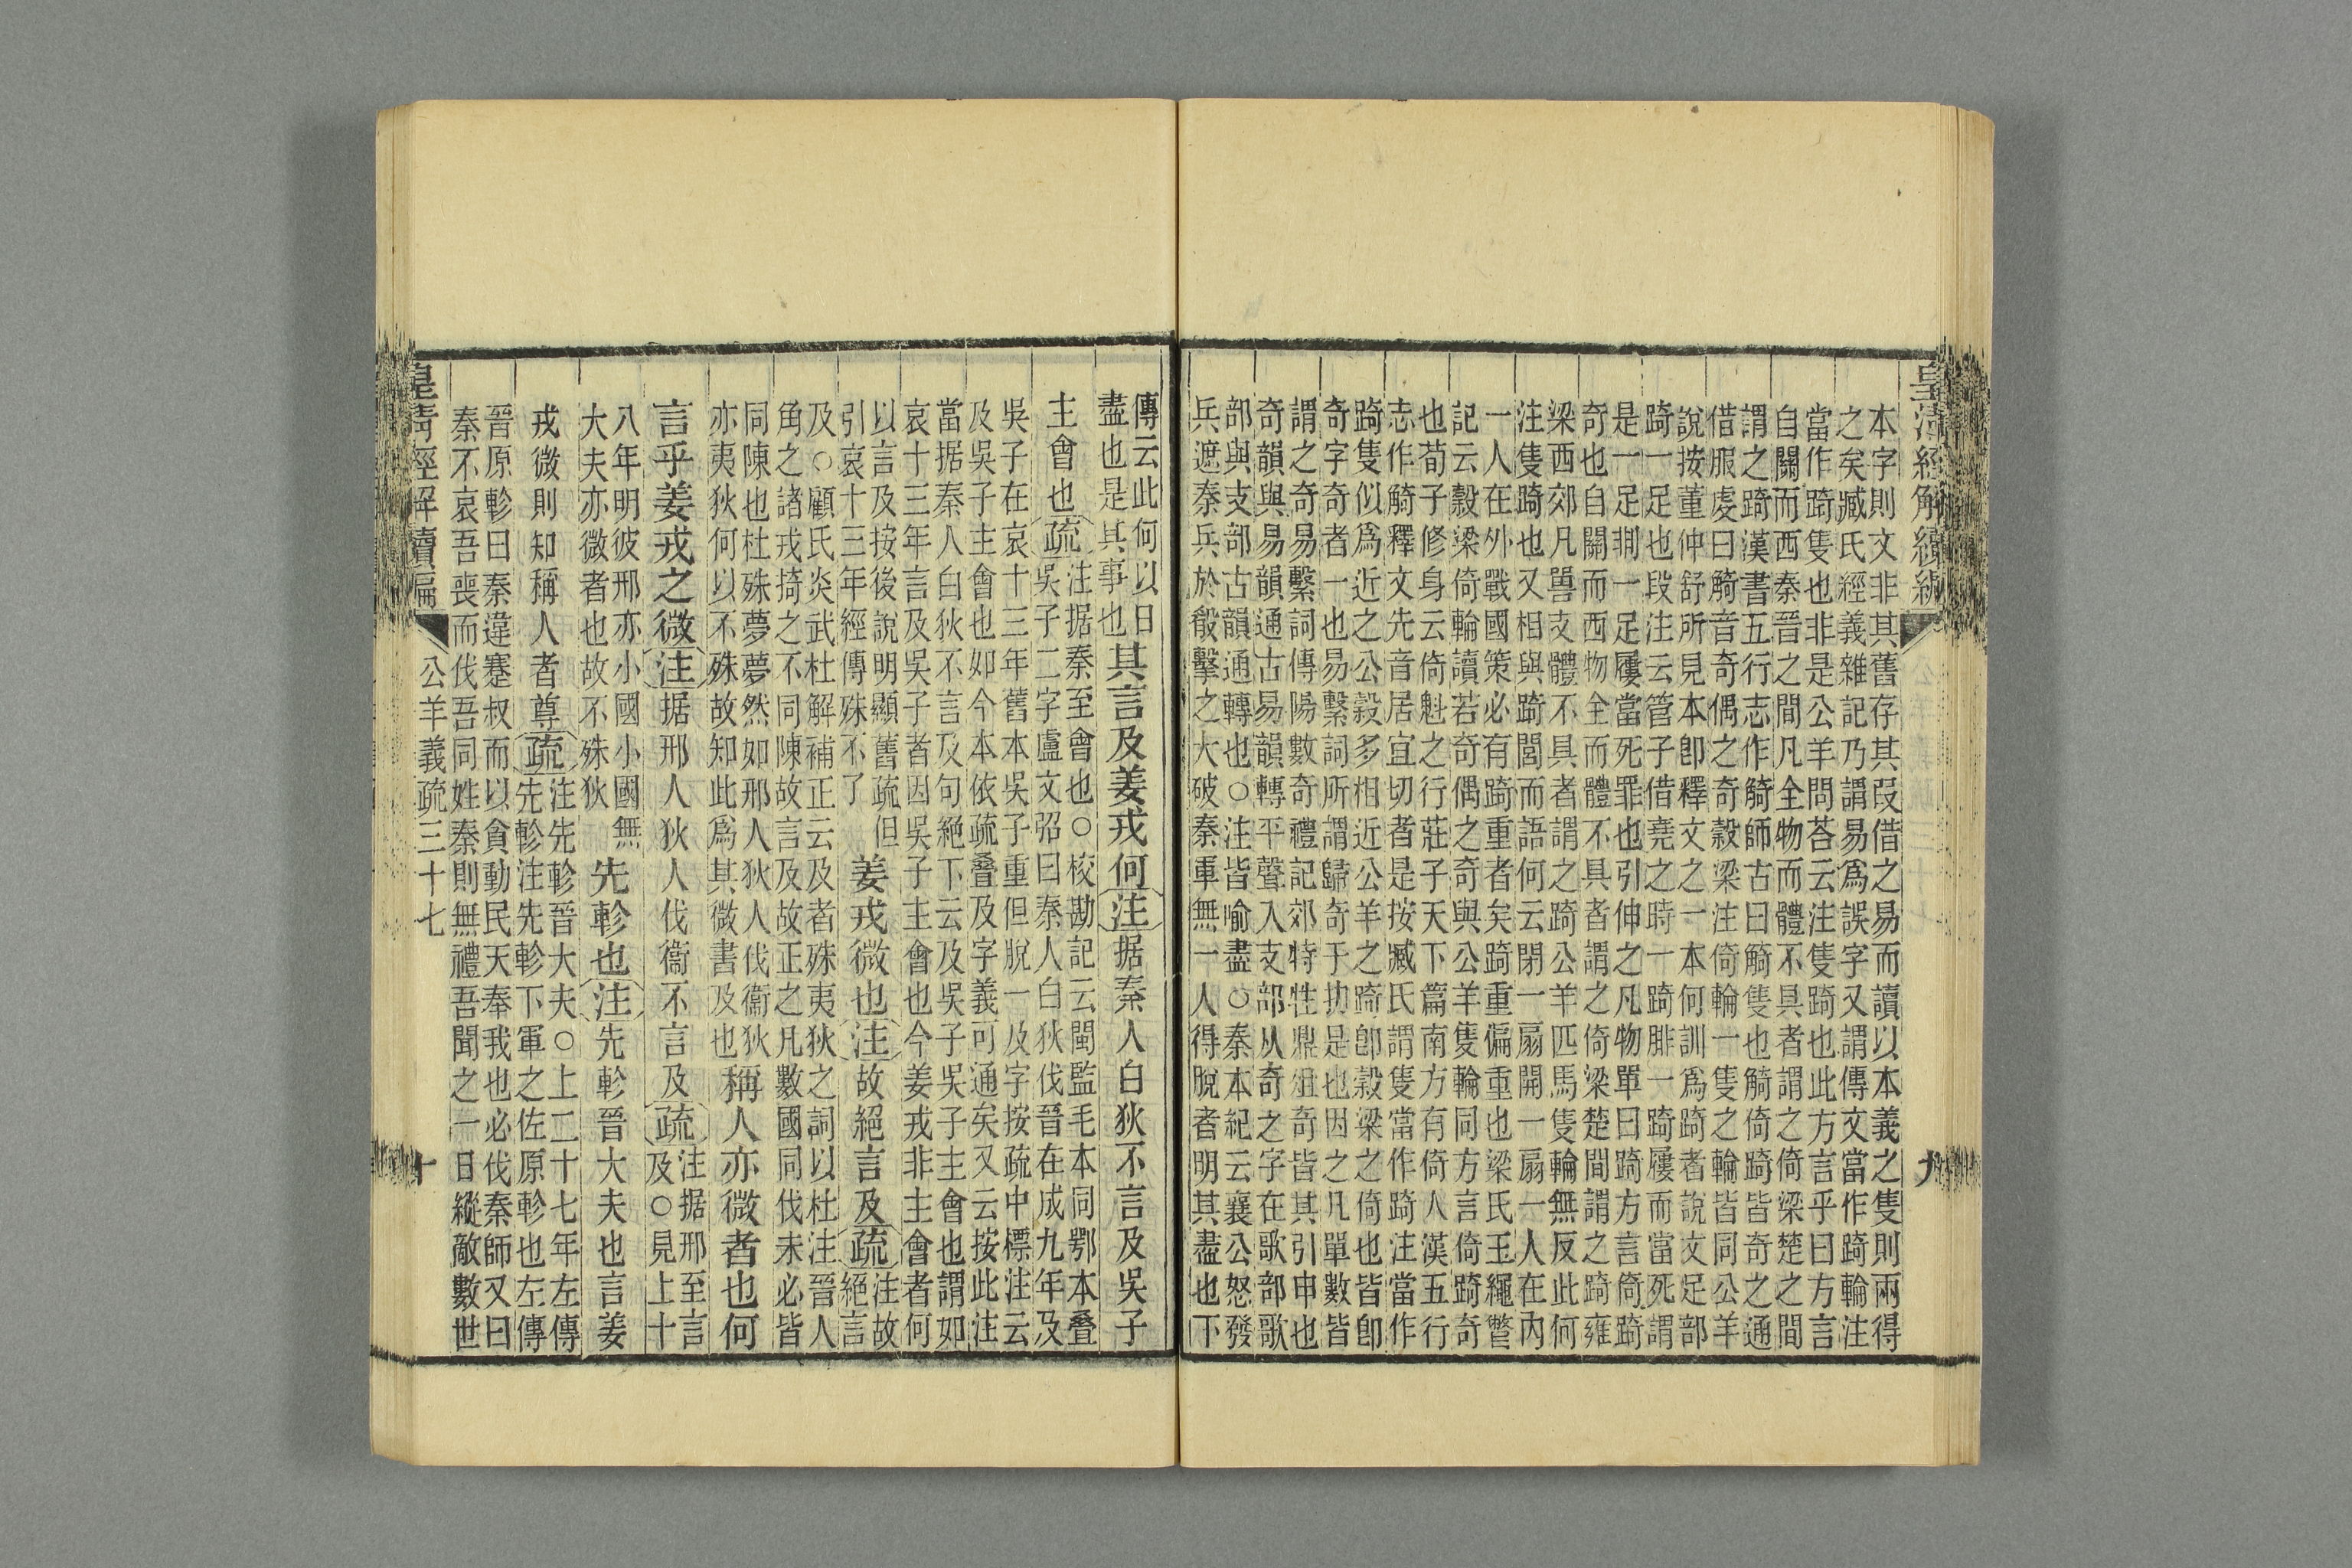 皇清經解續編
九
本字則文非其舊存其叚借之易而讀以本義之隻則兩得
之矣臧氏經義雜記乃謂易爲誤字又謂傳文當作踦輪注
當作踦隻也非是公羊問荅云注隻踦也此方言乎曰方言
自關而西秦晉之間凡全物而體不具者謂之倚梁楚之間
謂之踦漢書五行志作觭師古曰觭隻也觭倚踦皆奇之通
借服虔曰觭音奇偶之奇穀梁注倚輪一隻之輪皆同公羊
說按董仲舒所見本卽釋文之一本何訓爲踦者說文足部
踦一足也段注云管子借堯之時一踦腓一踦屨而當死謂
是一足剕一足屨當死罪也引伸之凡物單曰踦方言倚踦
奇也自關而西物全而體不具者謂之倚梁楚間謂之踦雍
梁西郊凡嘼支體不具者謂之踦公羊匹馬隻輪無反此何
注隻踦也又相與踦閭而語何云閉一扇開一扇一人在內
一人在外戰國策必有踦重者矣踦重偏重也梁氏玉繩瞥
記云穀梁倚輪讀若奇偶之奇與公羊隻輪同方言倚踦奇
也荀子修身云倚魁之行莊子天下篇南方有倚人漢五行
志作觭釋文先音居宜切者是按臧氏謂隻當作踦注當作
踦隻似爲近之公穀多相近公羊之踦卽穀梁之倚也皆卽
奇字奇者一也易繫詞所謂歸奇于扐是也因之凡單數皆
謂之奇易繫詞傳陽數奇禮記郊特牲鼎俎奇皆其引申也
奇韻與易韻通古易韻轉平聲入支部从奇之字在歌部歌
部與支部古韻通轉也○注皆喻盡○秦本紀云襄公怒發
兵遮秦兵於殽擊之大破秦軍無一人得脫者明其盡也下
傳云此何以日
盡也是其事也
其言及姜戎何注据秦人白狄不言及吳子
主會也疏
注据秦至會也○校勘記云閩監毛本同鄂本叠
吳子二字盧文弨曰秦人白狄伐晉在成九年及
吳子在哀十三年舊本吳子重但脫一及字按疏中標注云
及吳子主會也如今本依疏叠及字義可通矣又云按此注
當据秦人白狄不言及句絕下云及吳子吳子主會也謂如
哀十三年言及吳子者因吳子主會也今姜戎非主會者何
以言及按後說明顯舊疏但
引哀十三年經傳殊不了
姜戎微也注故絕言及疏
注故
絕言
及○顧氏炎武杜解補正云及者殊夷狄之詞以杜注晉人
角之諸戎掎之不同陳故言及故正之凡數國同伐未必皆
同陳也杜殊夢夢然如邢人狄人伐衞狄
亦夷狄何以不殊故知此爲其微書及也
稱人亦微者也何
言乎姜戎之微注据邢人狄人伐衞不言及疏
注据邢至言
及○見上十
八年明彼邢亦小國小國無
大夫亦微者也故不殊狄
先軫也注先軫晉大夫也言姜
戎微則知稱人者尊疏
注先軫晉大夫○上二十七年左傳
先軫注先軫下軍之佐原軫也左傳
晉原軫曰秦違蹇叔而以貪勤民天奉我也必伐秦師又曰
秦不哀吾喪而伐吾同姓秦則無禮吾聞之一日縱敵數世
皇清經解續編
公羊義疏三十七
十